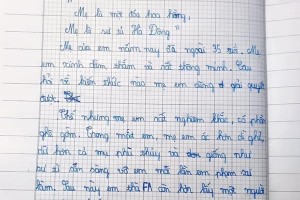 "
Mẹ là một đóa hoa hồng,
Mẹ là sư tử Hà Đông"
Mẹ của em năm nay đã ngoài 35 rồi. Mẹ
em xinh đẹp lắm và rất thông minh. Câu
hỏi và kiến thức nào mẹ em cũng giải quyết
được.
Thế nhưng mẹ em rất nghiêm khắc, có phần
ghê gớm. Trong mắt em, mẹ em ác hơn dì ghẻ,
dữ hơn cả mụ phù thủy và giống như
sư tử sẵn sàng vồ em mỗi lần em phạm sai
lầm. Sau này em thà FA còn hơn lấy một người